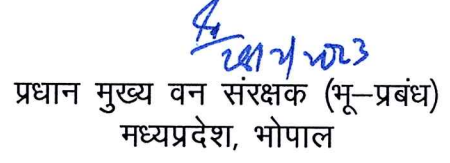 28/2/2023
प्रधान मुख्य वन संरक्षक (भू–प्रबंध)
मध्यप्रदेश, भोपाल